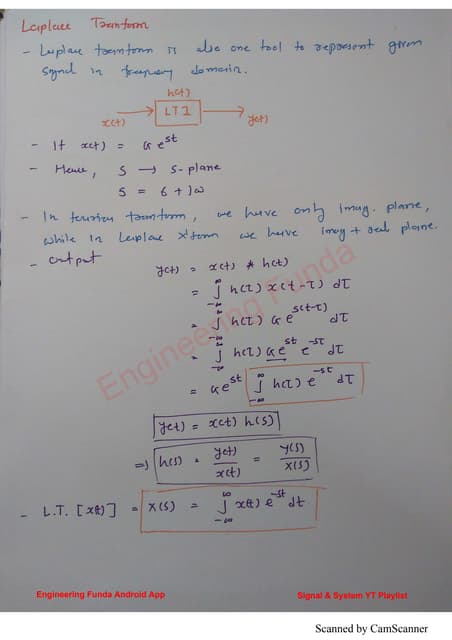 Laplace Transform
- Laplace transform is also one tool to represent given
signal in frequency domain.
h(t)
x(t) → LTI → y(t)
- If x(t) = G e^st
- Here, S → S-plane
S = 6 + Jω
- In fourier transform, we have only Imag. plane,
while in Laplace X'form we have Imag + real plane.
- output
y(t) = x(t) * h(t)
= ∫_-∞^∞ h(τ) x(t-τ) dτ
= ∫_-∞^∞ h(τ) G e^s(t-τ) dτ
= ∫_-∞^∞ h(τ) G e^st e^-sτ dτ
= G e^st ∫_-∞^∞ h(τ) e^-sτ dτ
y(t) = x(t) h(s)
⇒ h(s) = y(t)/x(t) = Y(s)/X(s)
- L.T. [x(t)] = X(s) = ∫_-∞^∞ x(t) e^-st dt
Engineering Funda
Engineering Funda Android App
Signal & System YT Playlist
Scanned by CamScanner